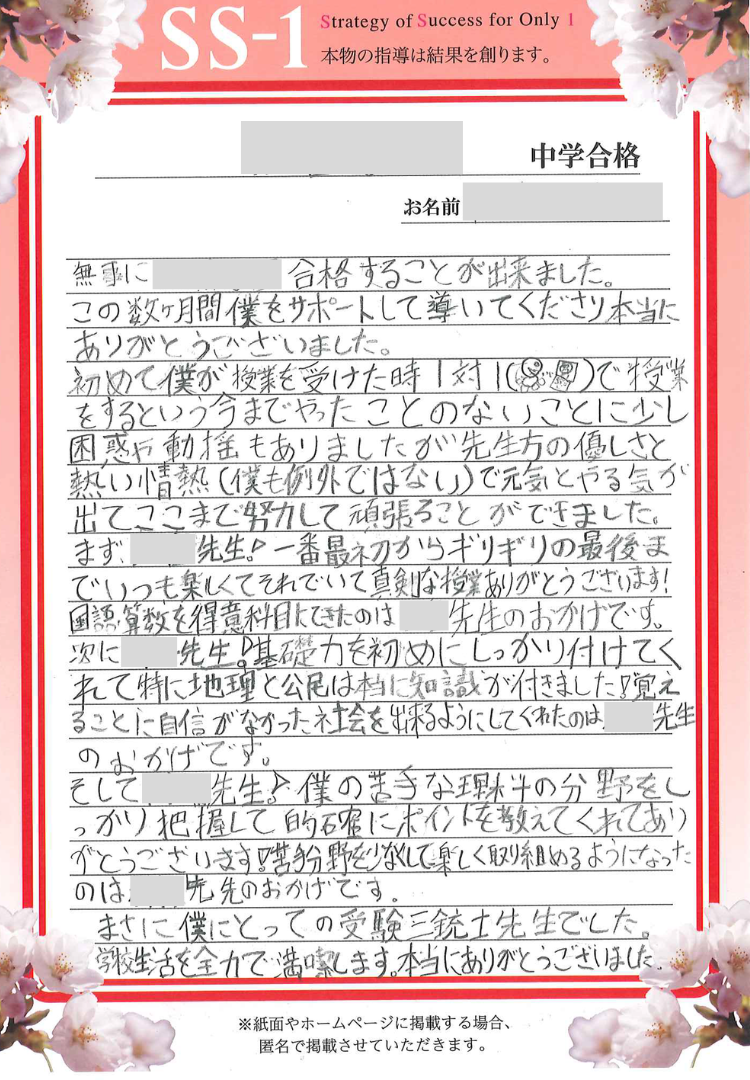 SS-1
Strategy of Success for Only 1
本物の指導は結果を創ります。
中学合格
お名前
無事に 合格することが出来ました。
この数ヶ月間僕をサポートして導いてくださり本当に
ありがとうございました。
初めて僕が授業を受けた時1対1( )で授業
をするという今までやったことのないことに少し
困惑や動揺もありましたが先生方の優しさと
熱い情熱(僕も例外ではない)で元気とやる気が
出てここまで努力して頑張ることができました。
まず 先生!一番最初からギリギリの最後ま
でいつも楽しくてそれでいて真剣な授業ありがとうございます!
国語算数を得意科目にできたのは 先生のおかげです。
次に 先生!基礎力を初めにしっかり付けてく
れて特に地理と公民は本当に知識が付きました!覚え
ることに自信がなかった社会を出来るようにしてくれたのは 先生
のおかげです。
そして 先生!僕の苦手な理科の分野をし
っかり把握して的確にポイントを教えてくれてあり
がとうございます!苦手分野を少なくして楽しく取り組めるようになった
のは 先先のおかげです。
まさに僕にとっての受験三銃士先生でした。
学校生活を全力で満喫します。本当にありがとうございました。
※紙面やホームページに掲載する場合、
匿名で掲載させていただきます。